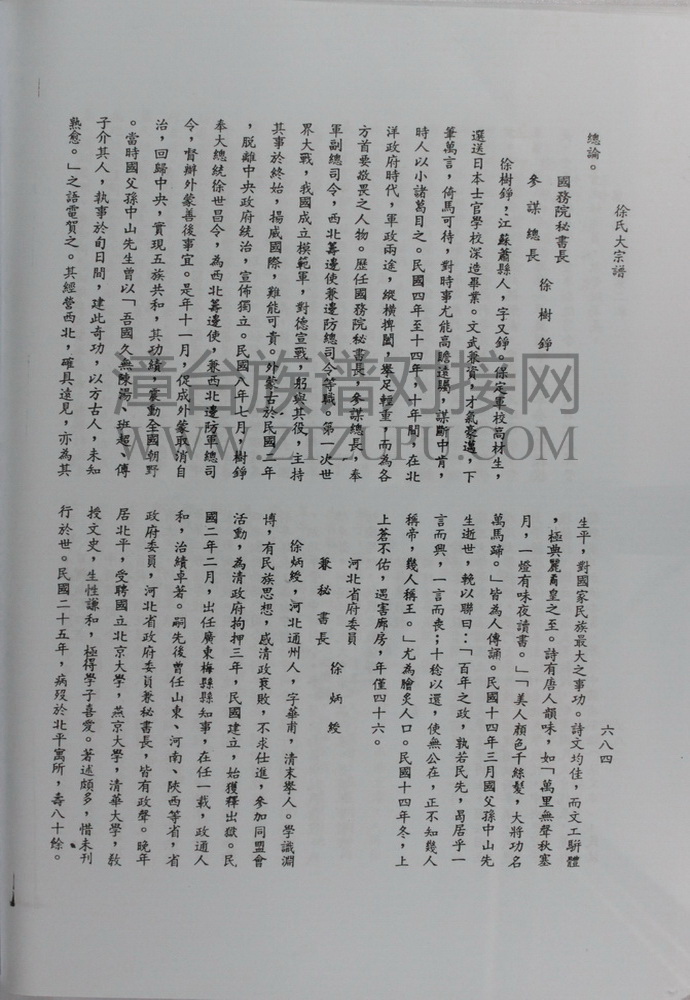 徐氏大宗譜
總論。
國務院秘書長
參謀總長　徐樹錚
徐樹錚，江蘇蕭縣人，字又錚。保定軍校高材生，
選送日本士官學校深造畢業。文武兼資，才氣豪邁，下
筆萬言，倚馬可待，對時事尤能高瞻遠矚，謀斷中肯，
時人以小諸葛目之。民國四年至十四年，十年間，在北
洋政府時代，軍政兩途，縱橫捭闔，舉足輕重，而為各
方首要敬畏之人物。歷任國務院秘書長，參謀總長，奉
軍副總司令，西北籌邊使兼邊防總司令等職。第一次世
界大戰，我國成立模範軍，對德宣戰，躬與其役，主持
其事於終始，揚威國際，難能可貴。外蒙古於民國二年
，脫離中央政府統治，宣佈獨立。民國八年七月，樹錚
奉大總統徐世昌令，為西北籌邊使，兼西北邊防軍總司
令，督辦外蒙善後事宜。是年十一月，促成外蒙取消自
治，回歸中央，實現五族共和，其功績，震動全國朝野
。當時國父孫中山先生曾以「吾國久無陳湯、班超、傅
子介其人，執事於旬日間，建此奇功，以方古人，未知
熟愈。」之語電賀之。其經營西北，確具遠見，亦為其
六八四
生平，對國家民族最大之事功。詩文均佳，而文工駢體
，極典麗矞皇之至。詩有唐人韻味，如「萬里無聲秋塞
月，一燈有味夜讀書。」「美人顏色千絲髮，大將功名
萬馬蹄。」皆為人傳誦。民國十四年三月國父孫中山先
生逝世，輓以聯曰：「百年之政，孰若民先，曷居乎一
言而興，一言而喪；十稔以還，使無公在，正不知幾人
稱帝，幾人稱王。」尤為膾炙人口。民國十四年冬，上
上蒼不佑，遇害廊房，年僅四十六。
河北省府委員
兼秘書長　徐炳綬
徐炳綬，河北通州人，字華甫，清末舉人。學識淵
博，有民族思想，感清政衰敗，不求仕進，參加同盟會
活動，為清政府拘押三年，民國建立，始獲釋出獄。民
國二年二月，出任廣東梅縣縣知事，在任一載，政通人
和，治績卓著。嗣先後曾任山東、河南、陝西等省，省
政府委員，河北省政府委員兼秘書長，皆有政聲。晚年
居北平，受聘國立北京大學，燕京大學，清華大學，教
授文史，生性謙和，極得學子喜愛。著述頗多，惜未刊
行於世。民國二十五年，病歿於北平寓所，壽八十餘。
章台族谱对接网
WWW.ZTZUPU.COM